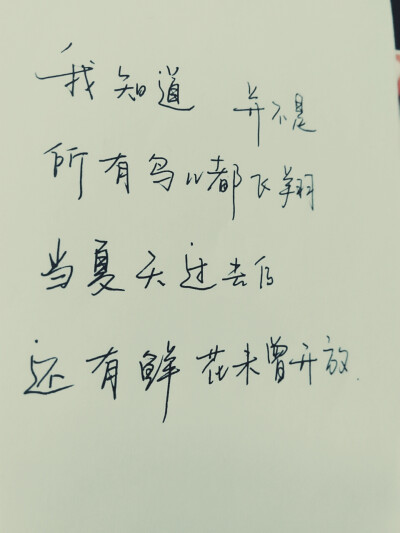 我知道 并不是
所有鸟儿都飞翔
当夏天过去后
还有鲜花未曾开放.